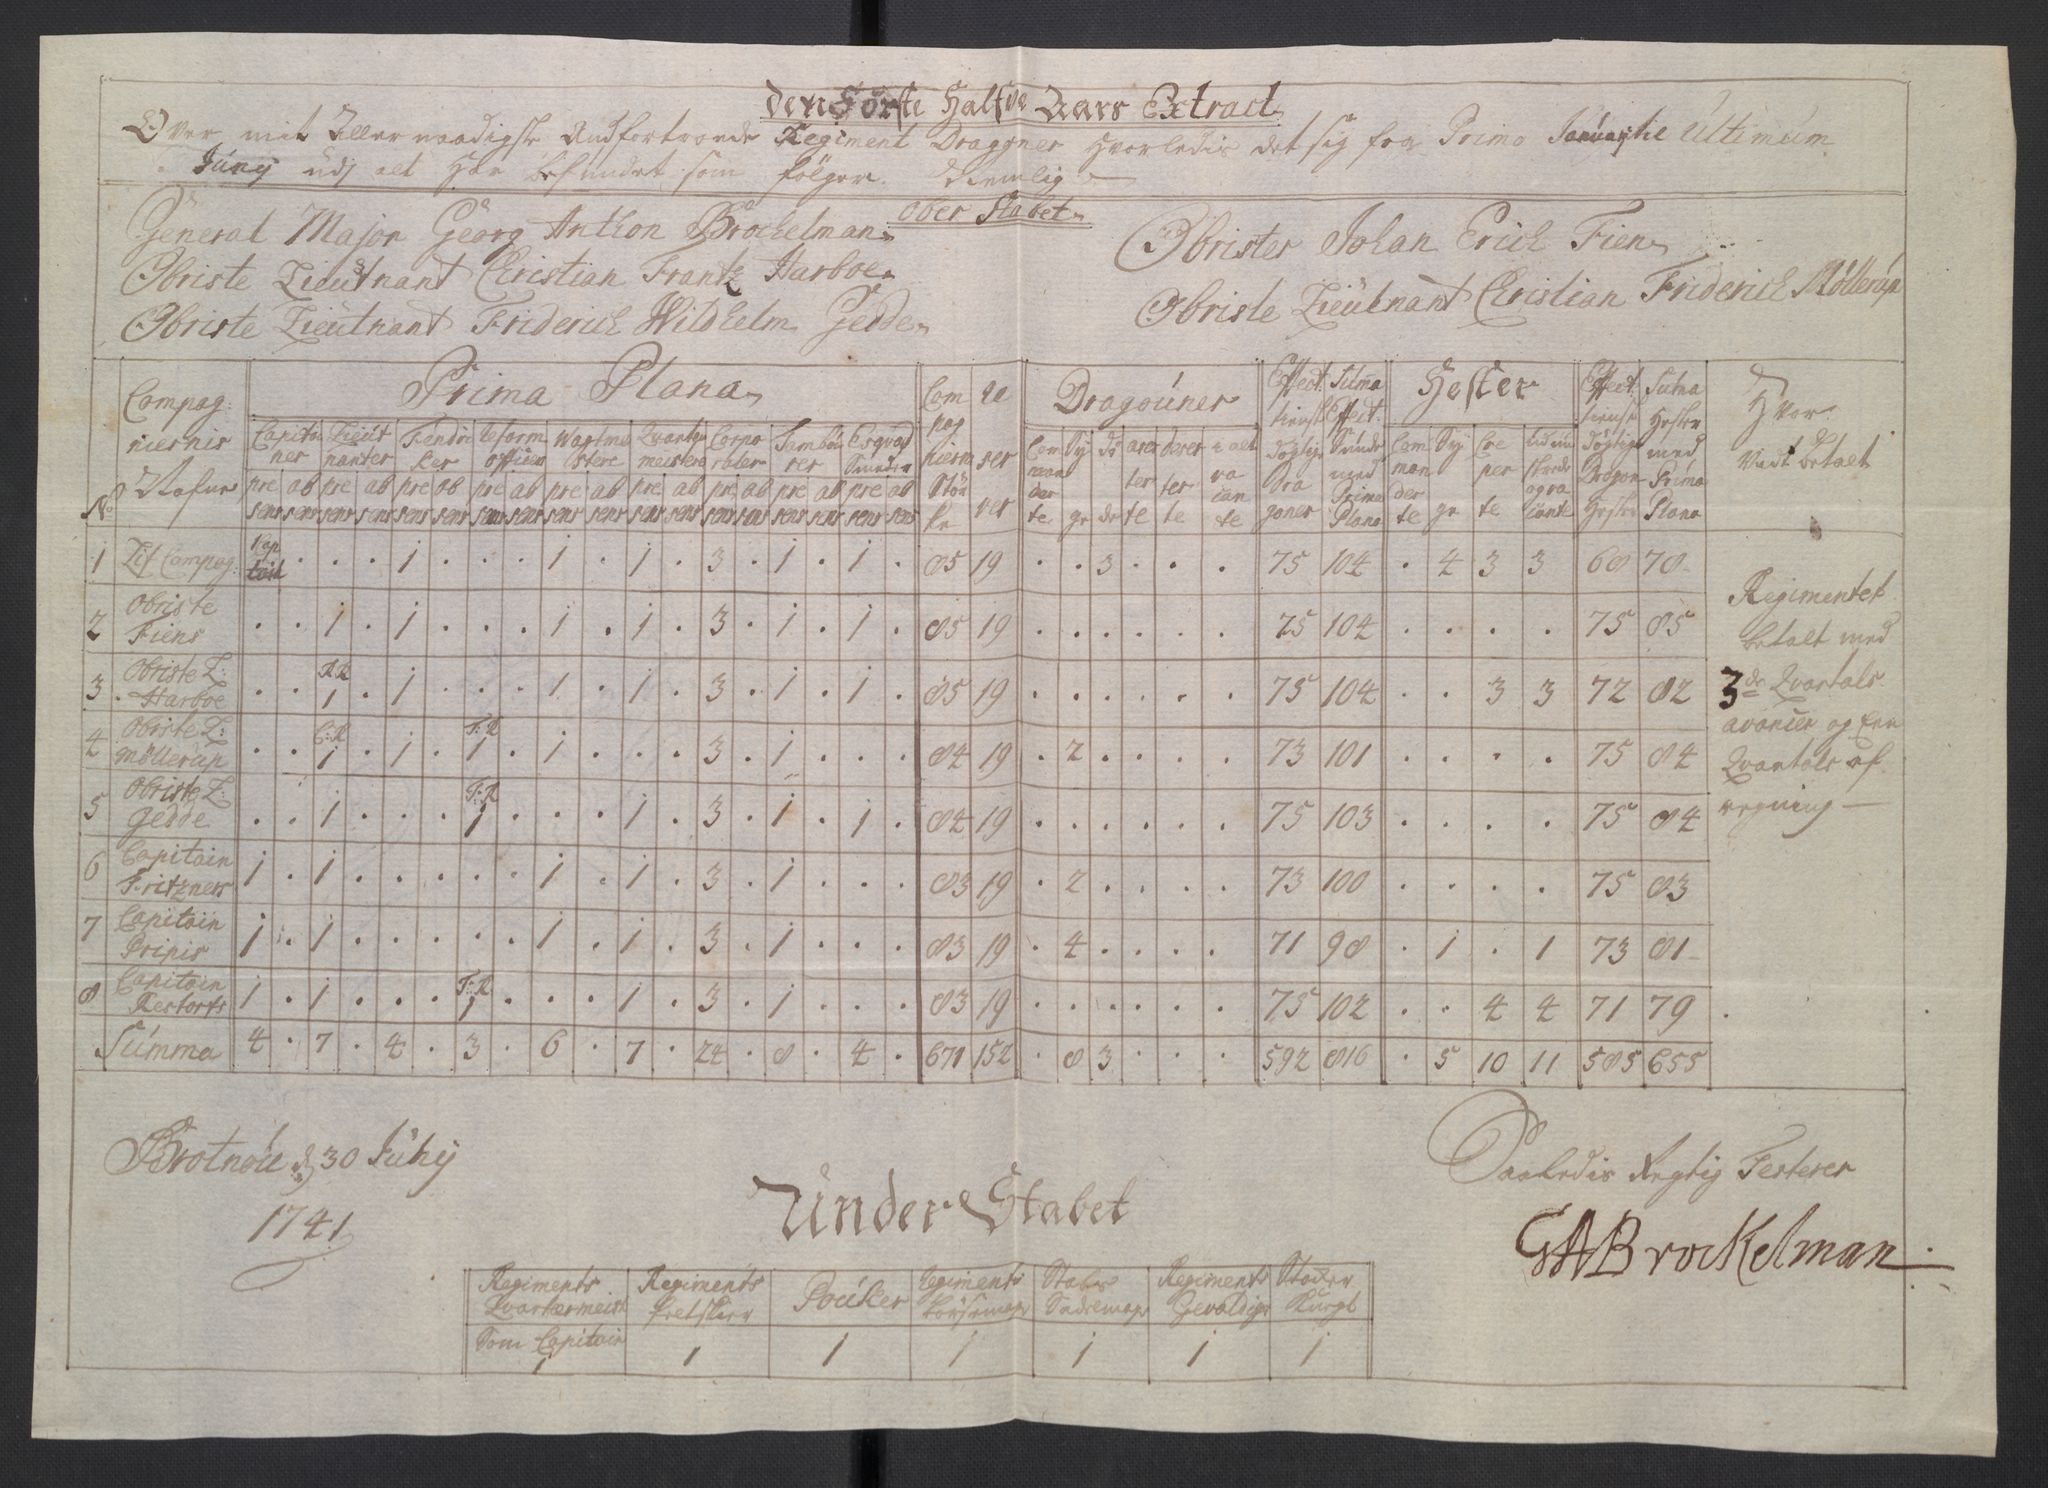 den Første Halfve Aars Extract
Over mit Aller naadigste Andfortroede Regiment Dragoner Hvorledis det sig fra Primo Januarij til Ultimum
Junij udj alt Har befundet som følger Nemlig
Ober Stabet
General Major Georg Anthon Brockelman
Obrister Johan Erich Fien
Obriste Lieutnant Christian Frantz Harboe
Obriste Lieutnant Christian Friderich Møllerup
Obriste Lieutnant Friderich Wildhelm Gedde
No Compagniernis Nafne
Prima Plana
Capitainer Lieutnanter Fendricker Reform Officier Wagtmestere Qvarteermestere Corporaler Tambourer Esqvad Smeder
pre sens ab sens pre sens ab sens pre sens ab sens pre sens ab sens pre sens ab sens pre sens ab sens pre sens ab sens pre sens ab sens pre sens ab sens
Compagniernis Støcke
Reserver
Dragouner
Commanderte Syge døde
Effect: tienst dögtige Dragoner
Suma Effect: Munder med Prima Plana
Hester
Commanderte Syge Creperte
Effect: tienst Dögtige Dragon Hester
Suma Hester med Prima Plana
Hvor Vidt betalt
1 Lif Compag: Kap tait . . . 1 . . . 1 . 1 . 3 . 1 . 1 . 85 19 . . 3 . . . 75 104 . 4 3 3 68 78
2 Obriste Fiens . . 1 . 1 . . . 1 . 1 . 3 . 1 . 1 . 85 19 . . . . . . 75 104 . . . . 75 85
3 Obriste L: Harboe . . R.R 1 . 1 . . . 1 . 1 . 3 . 1 . 1 . 85 19 . . . . . . 75 104 . . 3 3 72 82
4 Obriste L: Møllerup . . C:R 1 . 1 . F:R 1 . 1 . . . 3 . 1 . . . 84 19 . 2 . . . . 73 101 . . . . 75 84
5 Obriste L: Gedde . . 1 . . . F:R 1 . . . 1 . 3 . 1 . 1 . 84 19 . . . . . . 75 103 . . . . 75 84
6 Capitain Fritzners 1 . 1 . . . . . 1 . 1 . 3 . 1 . . . 83 19 . 2 . . . . 73 100 . . . . 75 83
7 Capitain Pripis 1 . 1 . . . . . 1 . 1 . 3 . 1 . . . 83 19 . 4 . . . . 71 98 . 1 . 1 73 81
8 Capitain Restorfs 1 . 1 . . . F:R 1 . . . 1 . 3 . 1 . . . 83 19 . . . . . . 75 102 . . 4 4 71 79
Summa 4 . 7 . 4 . 3 . 6 . 7 . 24 . 8 . 4 . 671 152 . 8 3 . . . 592 816 . 5 10 11 585 655
Regimentet
betalt med
3de Qvartals
avancer og Een
Qvartals af
regning
Brotnöu d 30 Junij
1741
Saaledis Rigtig Testerer
GABrockelman
Under Stabet
Regiments Qvarteermeist Regiments Feltskier Pouker Regiments Stabs Sadelmager Regiments Gevaldiger Stocker Knegt
Som Capitain
1 1 1 1 1 1 1